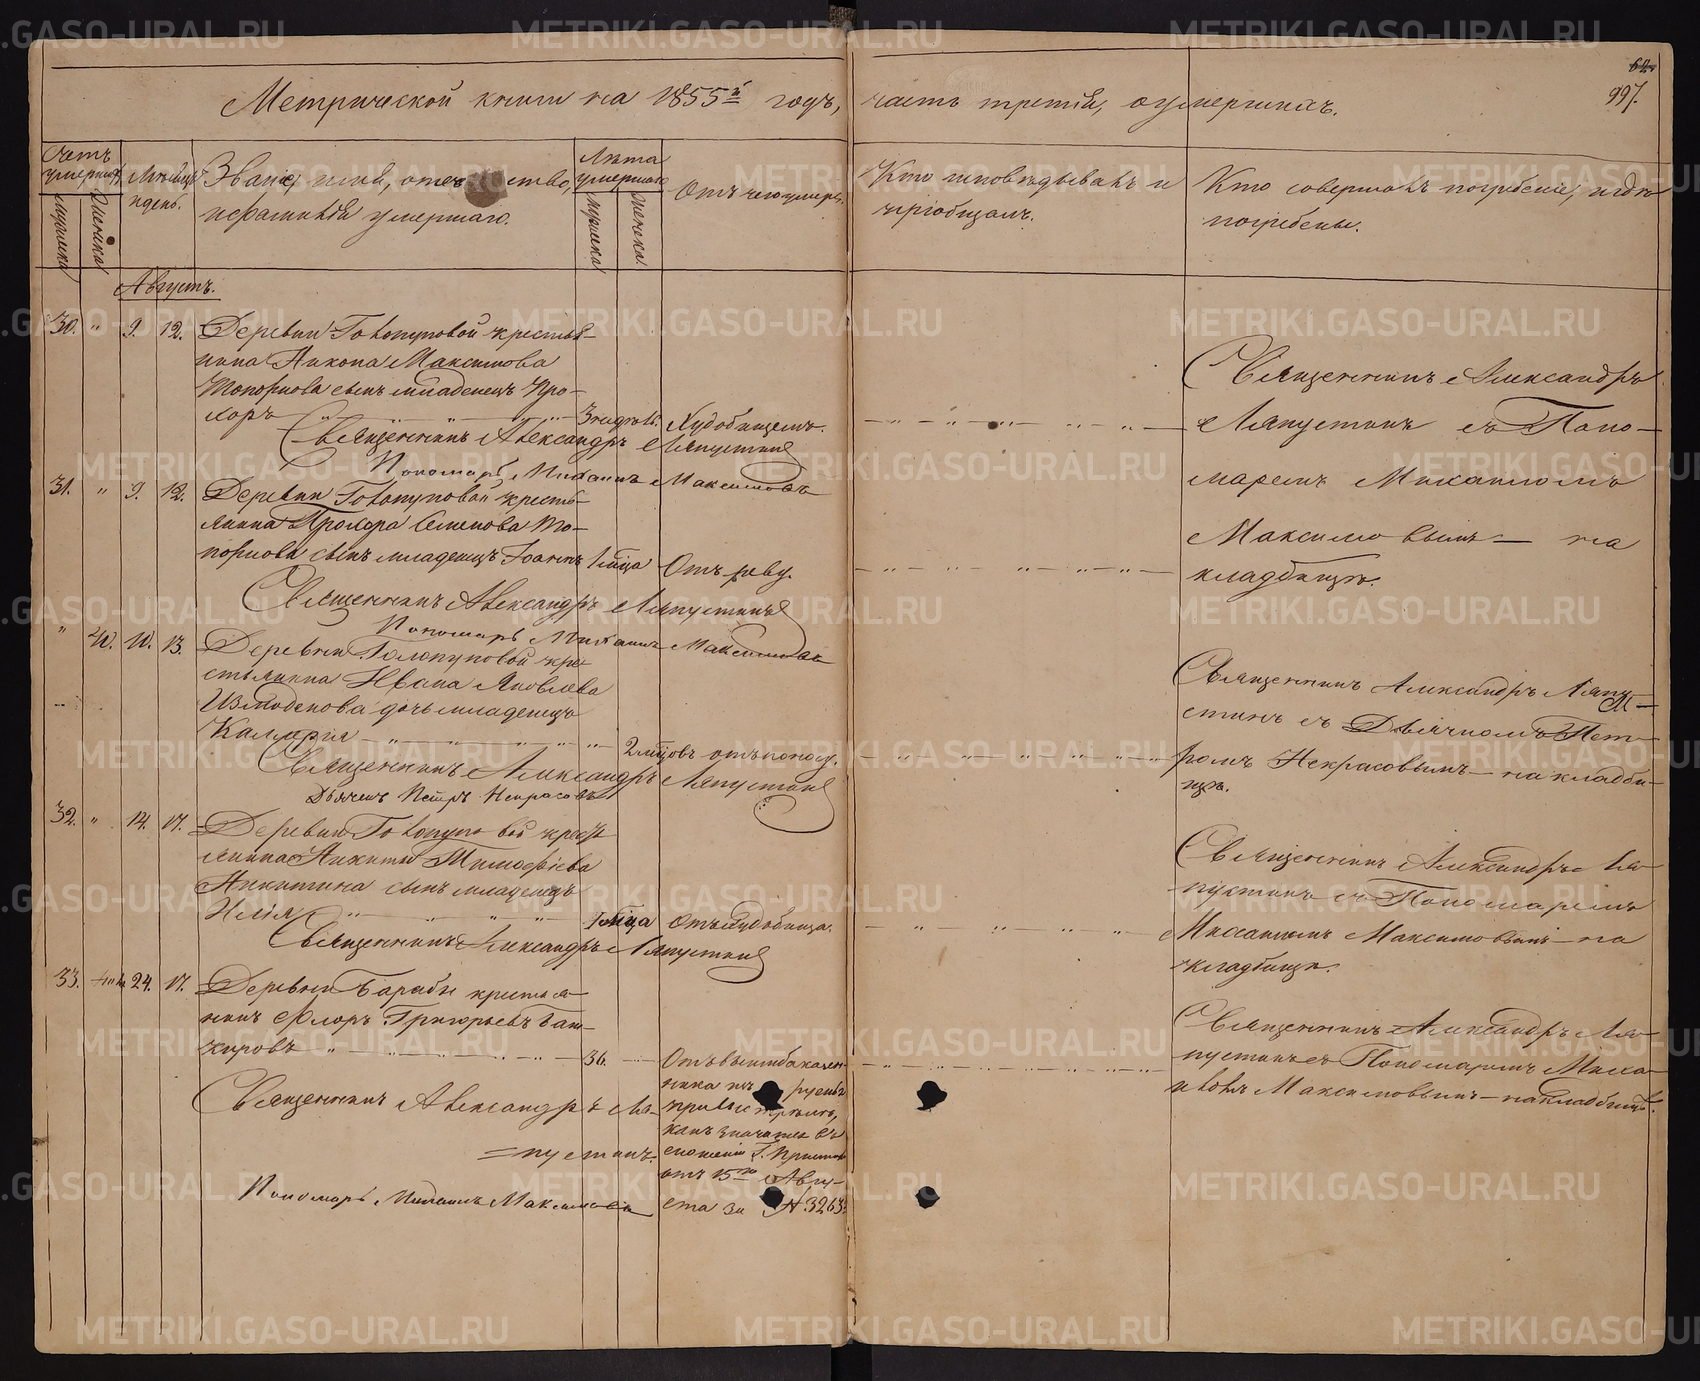 Метрической книги на 1855й годъ, часть третія, о умершихъ.
62.
997.
Счетъ умершихъ
мужеска
женска
Мѣсяцъ и день.
Званіе, имя, отечество,
и фамилія умершаго.
Лѣта умершаго
мужеска
женска
Отъ чего умеръ.
Кто исповѣдывалъ и
пріобщалъ.
Кто совершалъ погребеніе, и гдѣ
погребены.
Августъ.
30. " 9. 12. Деревни Голопуповой крестья-
нина Никона Максимова
Топоркова сынъ младенецъ Про-
хоръ 3 недѣль. Худобищемъ.
Священникъ Александръ Ляпустинъ
Пономарь Михаилъ Максимовъ
Священникъ Александръ
Ляпустинъ съ Поно-
маремъ Михаиломъ
Максимовымъ — на
кладбищѣ.
31. " 9. 12. Деревни Голопуповой кресть-
янина Прохора Семенова То-
поркова сынъ младенецъ Іоаннъ 1 мѣсяца Отъ реву.
Священникъ Александръ Ляпустинъ
Пономарь Михаилъ Максимовъ
" 40. 10. 13. Деревни Голопуповой кре-
стьянина Ивана Яковлева
Измоденова дочь младенецъ
Калерія 2 мѣсяцовъ отъ поносу.
Священникъ Александръ Ляпустинъ
Дьячекъ Петръ Некрасовъ
Священникъ Александръ Ляпу-
стинъ съ Дьячкомъ Пет-
ромъ Некрасовымъ — на кладби-
щѣ.
32. " 14. 17. Деревни Голопуповой кресть-
янина Никиты Тимофѣева
Никитина сынъ младенецъ
Илія 1 мѣсяца Отъ худобища.
Священникъ Александръ Ляпустинъ
Священникъ Александръ Ля-
пустинъ съ Пономаремъ
Михаиломъ Максимовымъ — на
кладбищѣ.
33. 24. 17. Деревни Барабы крестья-
нинъ Флоръ Григорьевъ Баш-
кировъ 36. Отъ
Священникъ Александръ Ля-
=пустинъ.
Пономарь Михаилъ Максимовъ
какъ значится въ
сношеніи Г. Пристава
отъ 15го Авгу-
ста за № 3263.
Священникъ Александръ Ля-
пустинъ съ Пономаремъ Миха-
иломъ Максимовымъ — на кладбищѣ.
METRIKI.GASO-URAL.RU